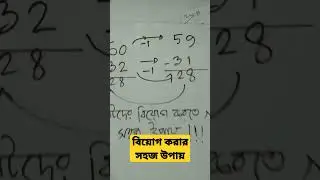 60 → -1 59
32 → -1 - 31
28 28
দের বিয়োগ করতে
সহজ উপায় !!!
বিয়োগ করার
সহজ উপায়